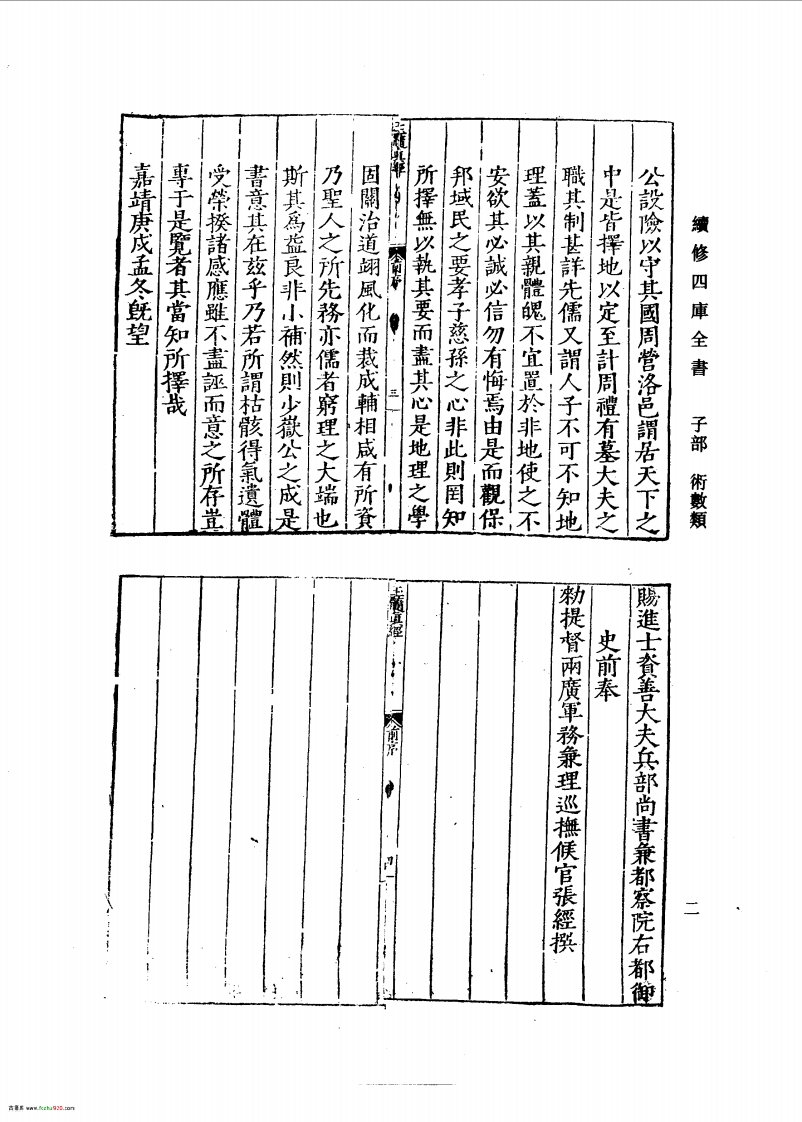 續修四庫全書 子部 術數類
公設險以守其國周營洛邑謂居天下之
中是皆擇地以定至計周禮有墓大夫之
職其制甚詳先儒又謂人子不可不知地
理蓋以其親體魄不宜置於非地使之不
安欲其必誠必信勿有悔焉由是而觀保
邦域民之要孝子慈孫之心非此則罔知
所擇無以執其要而盡其心是地理之學
前序
三
固關治道翊風化而裁成輔相咸有所資
乃聖人之所先務亦儒者窮理之大端也
斯其為益良非小補然則少嶽公之成是
書意其在茲乎乃若所謂枯骸得氣遺體
受榮揆諸感應雖不盡誣而意之所存豈
專于是覽者其當知所擇哉
嘉靖庚戌孟冬旣望
賜進士資善大夫兵部尚書兼都察院右都御
史前奉
勑提督兩廣軍務兼理巡撫候官張經撰
玉髓真經
前序
四
二
www.fozhu920.com